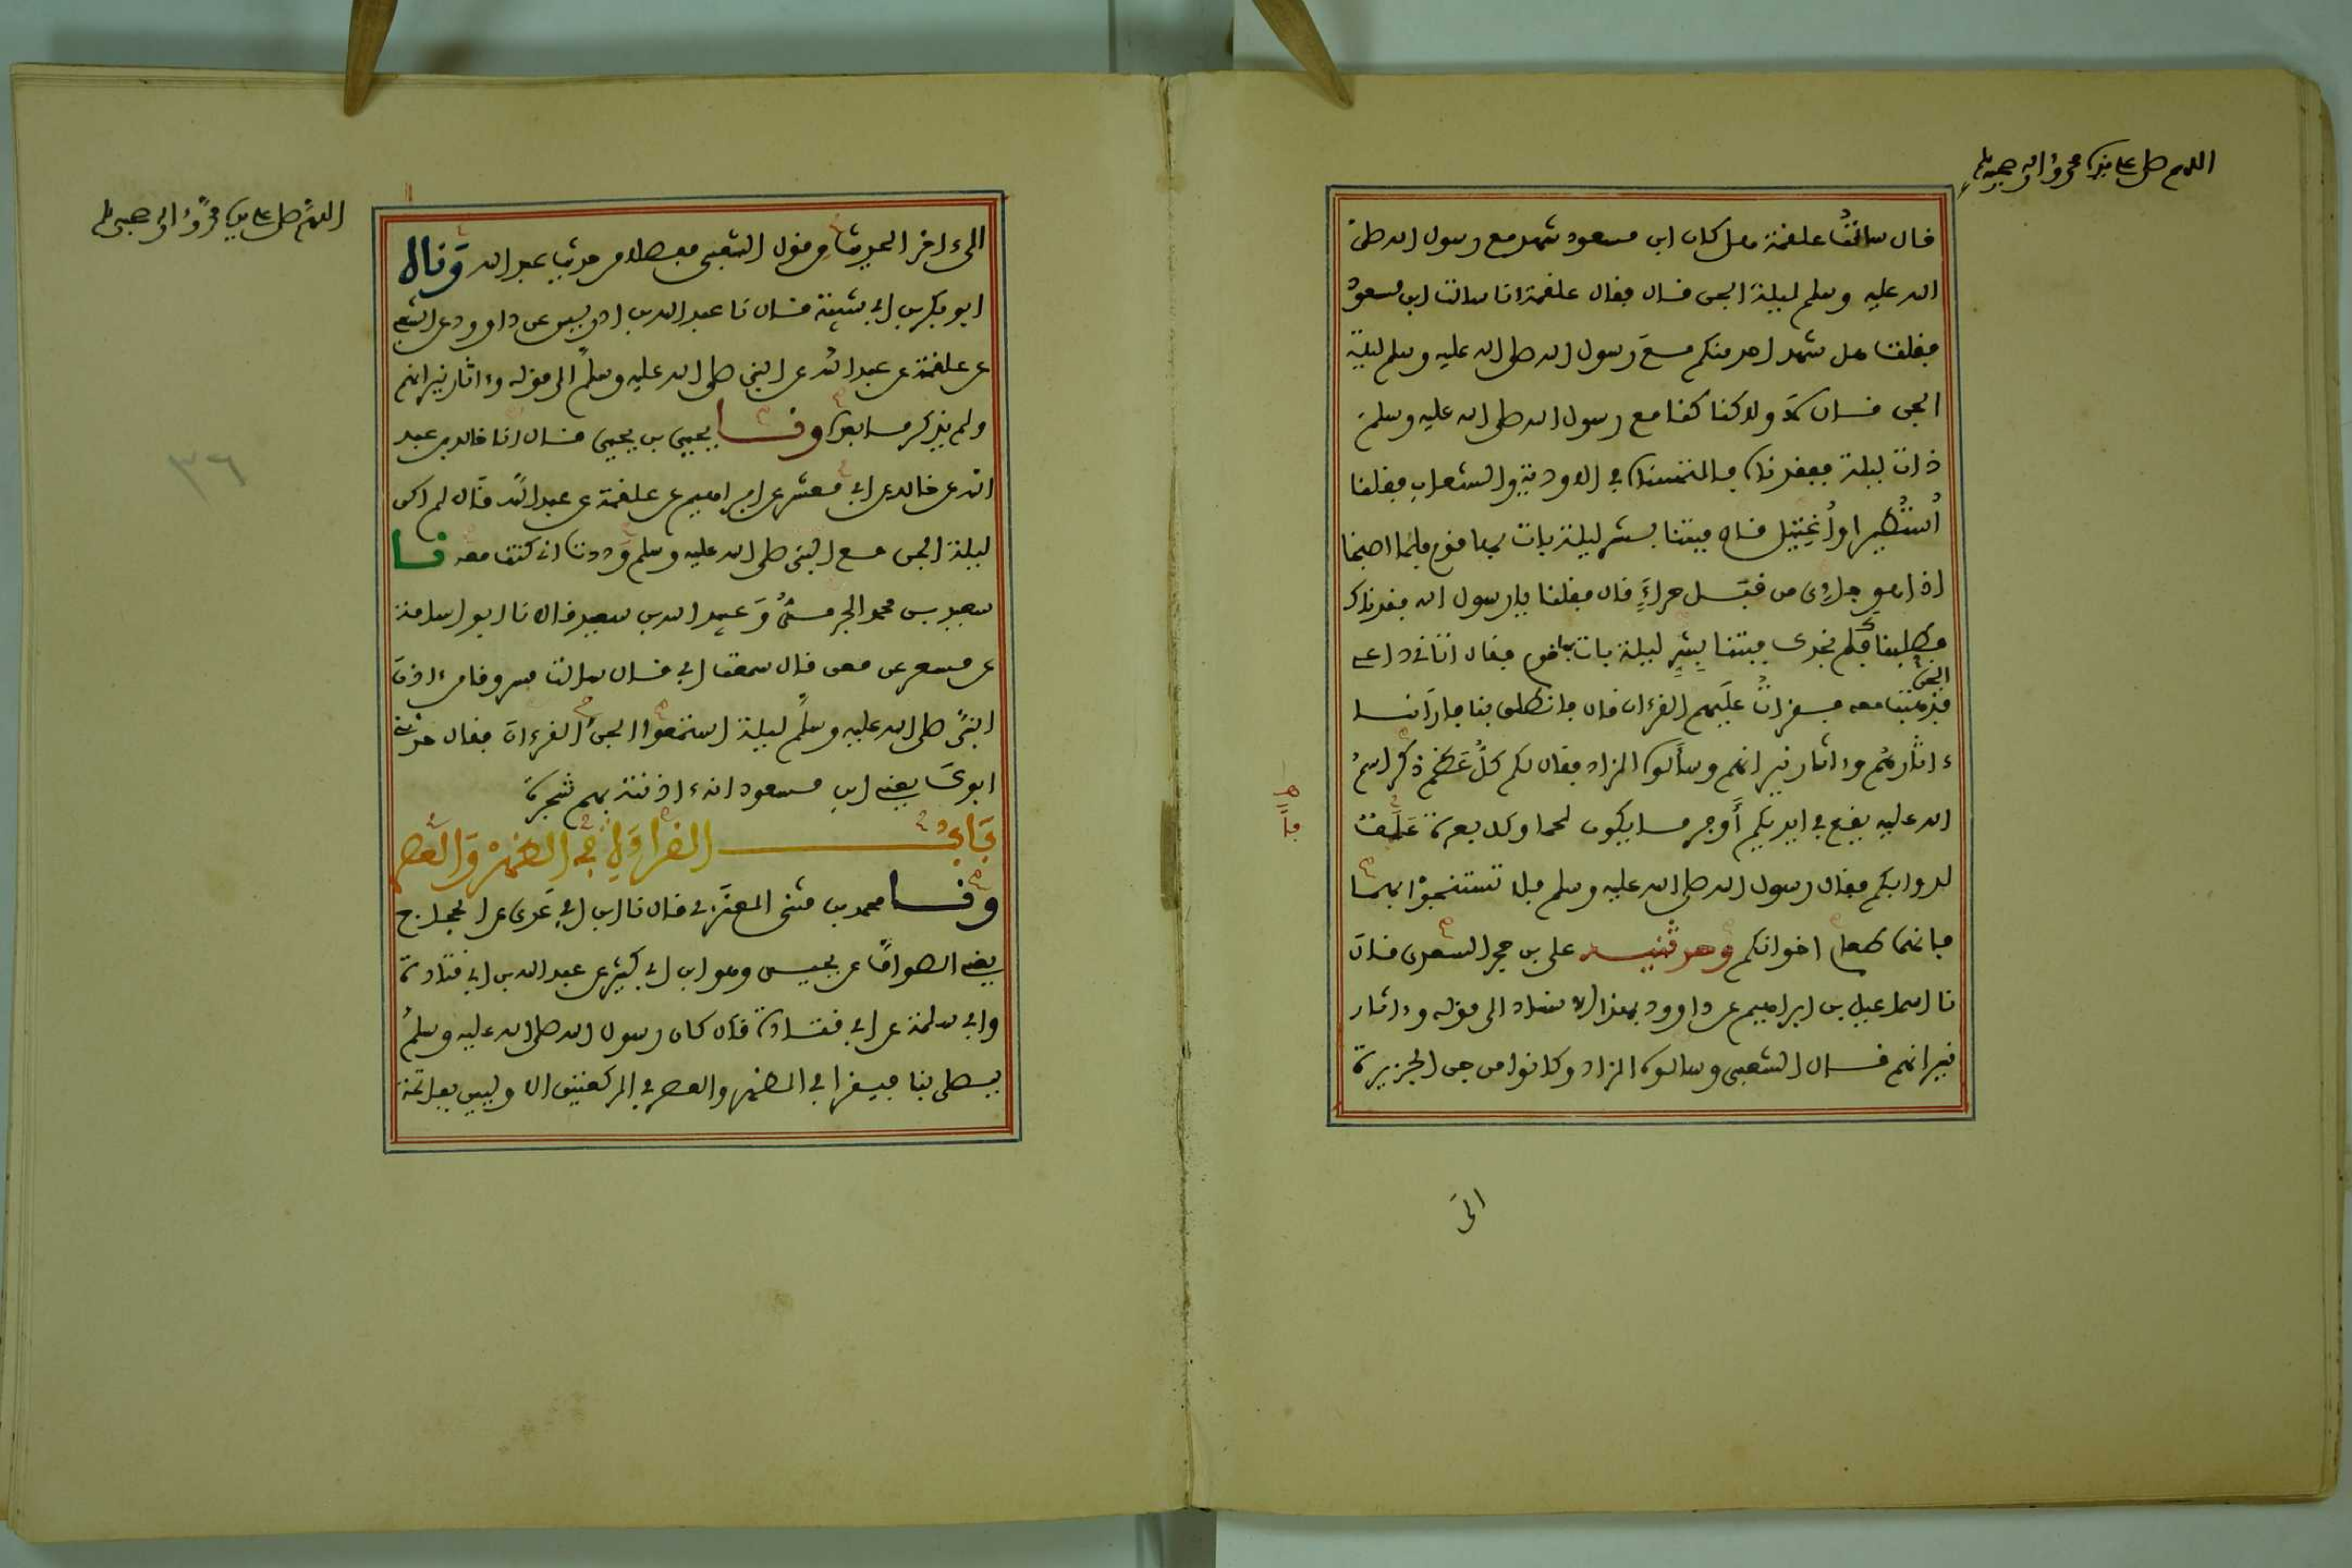 اللهم صل على سيدنا محمد وءاله وصحبه وسلم
قال سالت علقمة هل كان ابن مسعود شهد مع رسول الله صلى
الله عليه وسلم ليلة الجن قال فقال علقمة انا سالت ابن مسعود
فقلت هل شهد احد منكم مع رسول الله صلى الله عليه وسلم ليلة
الجن قال لا ولاكنا كنا مع رسول الله صلى الله عليه وسلم
ذات ليلة ففقدناه فالتمسناه في الاودية والشعاب فقلنا
استطير او اغتيل قال فبتنا بشر ليلة بات بها قوم فلما اصبحنا
اذا هو جاءى من قبل حراء قال فقلنا يا رسول الله فقدناك
وطلبناك فلم نجدك فبتنا بشر ليلة بات بها قوم فقال اتاني داعي
الجن
فذهبت معه فقرات عليهم القرءان قال فانطلق بنا فارانا
ءاثارهم وءاثار نيرانهم وسألوه الزاد فقال لكم كل عظم ذكر اسم
الله عليه يقع في ايديكم أوفر ما يكون لحما وكل بعرة علف
لدوابكم فقال رسول الله صلى الله عليه وسلم فلا تستنجوا بهما
فانهما طعام اخوانكم وحدثنيه على بن حجر السعدى قال
نا اسماعيل بن ابراهيم عن داوود بهذا الاسناد الى قوله وءاثار
نيرانهم قال الشعبى وسالوه الزاد وكانوا من جن الجزيرة
الى
اللهم صل على سيدنا محمد وءاله وصحبه وسلم
الى ءاخر الحديث من قول الشعبى مفصلا من حديث عبد الله وقال
ابو بكر بن ابي شيبة قال نا عبد الله بن ادريس عن داوود عن الشعبي
عن علقمة عن عبد الله عن النبي صلى الله عليه وسلم الى قوله وءاثار نيرانهم
ولم يذكر ما بعده ونا يحيى بن يحيى قال انا خالد بن عبد
الله عن خالد عن ابي معشر عن ابراهيم عن علقمة عن عبد الله قال لم اكن
ليلة الجن مع النبي صلى الله عليه وسلم ووددت اني كنت معه نا
سعيد بن محمد الجرمى وعبيد الله بن سعيد قالا نا ابو اسامة
عن مسعر عن معن قال سمعت ابي قال سالت مسروقا من ءاذن
النبي صلى الله عليه وسلم ليلة استمعوا الجن القرءان فقال حدثني
ابوك يعني ابن مسعود انه ءاذنته بهم شجرة
باب القراءة في الظهر والعصر
ونا محمد بن مثنى العنزي قال نا ابن ابي عدى عن الحجاج
يعني الصواف عن يحيى وهو ابن ابي كثير عن عبد الله بن ابي قتادة
وابي سلمة عن ابي قتادة قال كان رسول الله صلى الله عليه وسلم
يصلى بنا فيقرا في الظهر والعصر في الركعتين الاوليين بفاتحة
٣٦